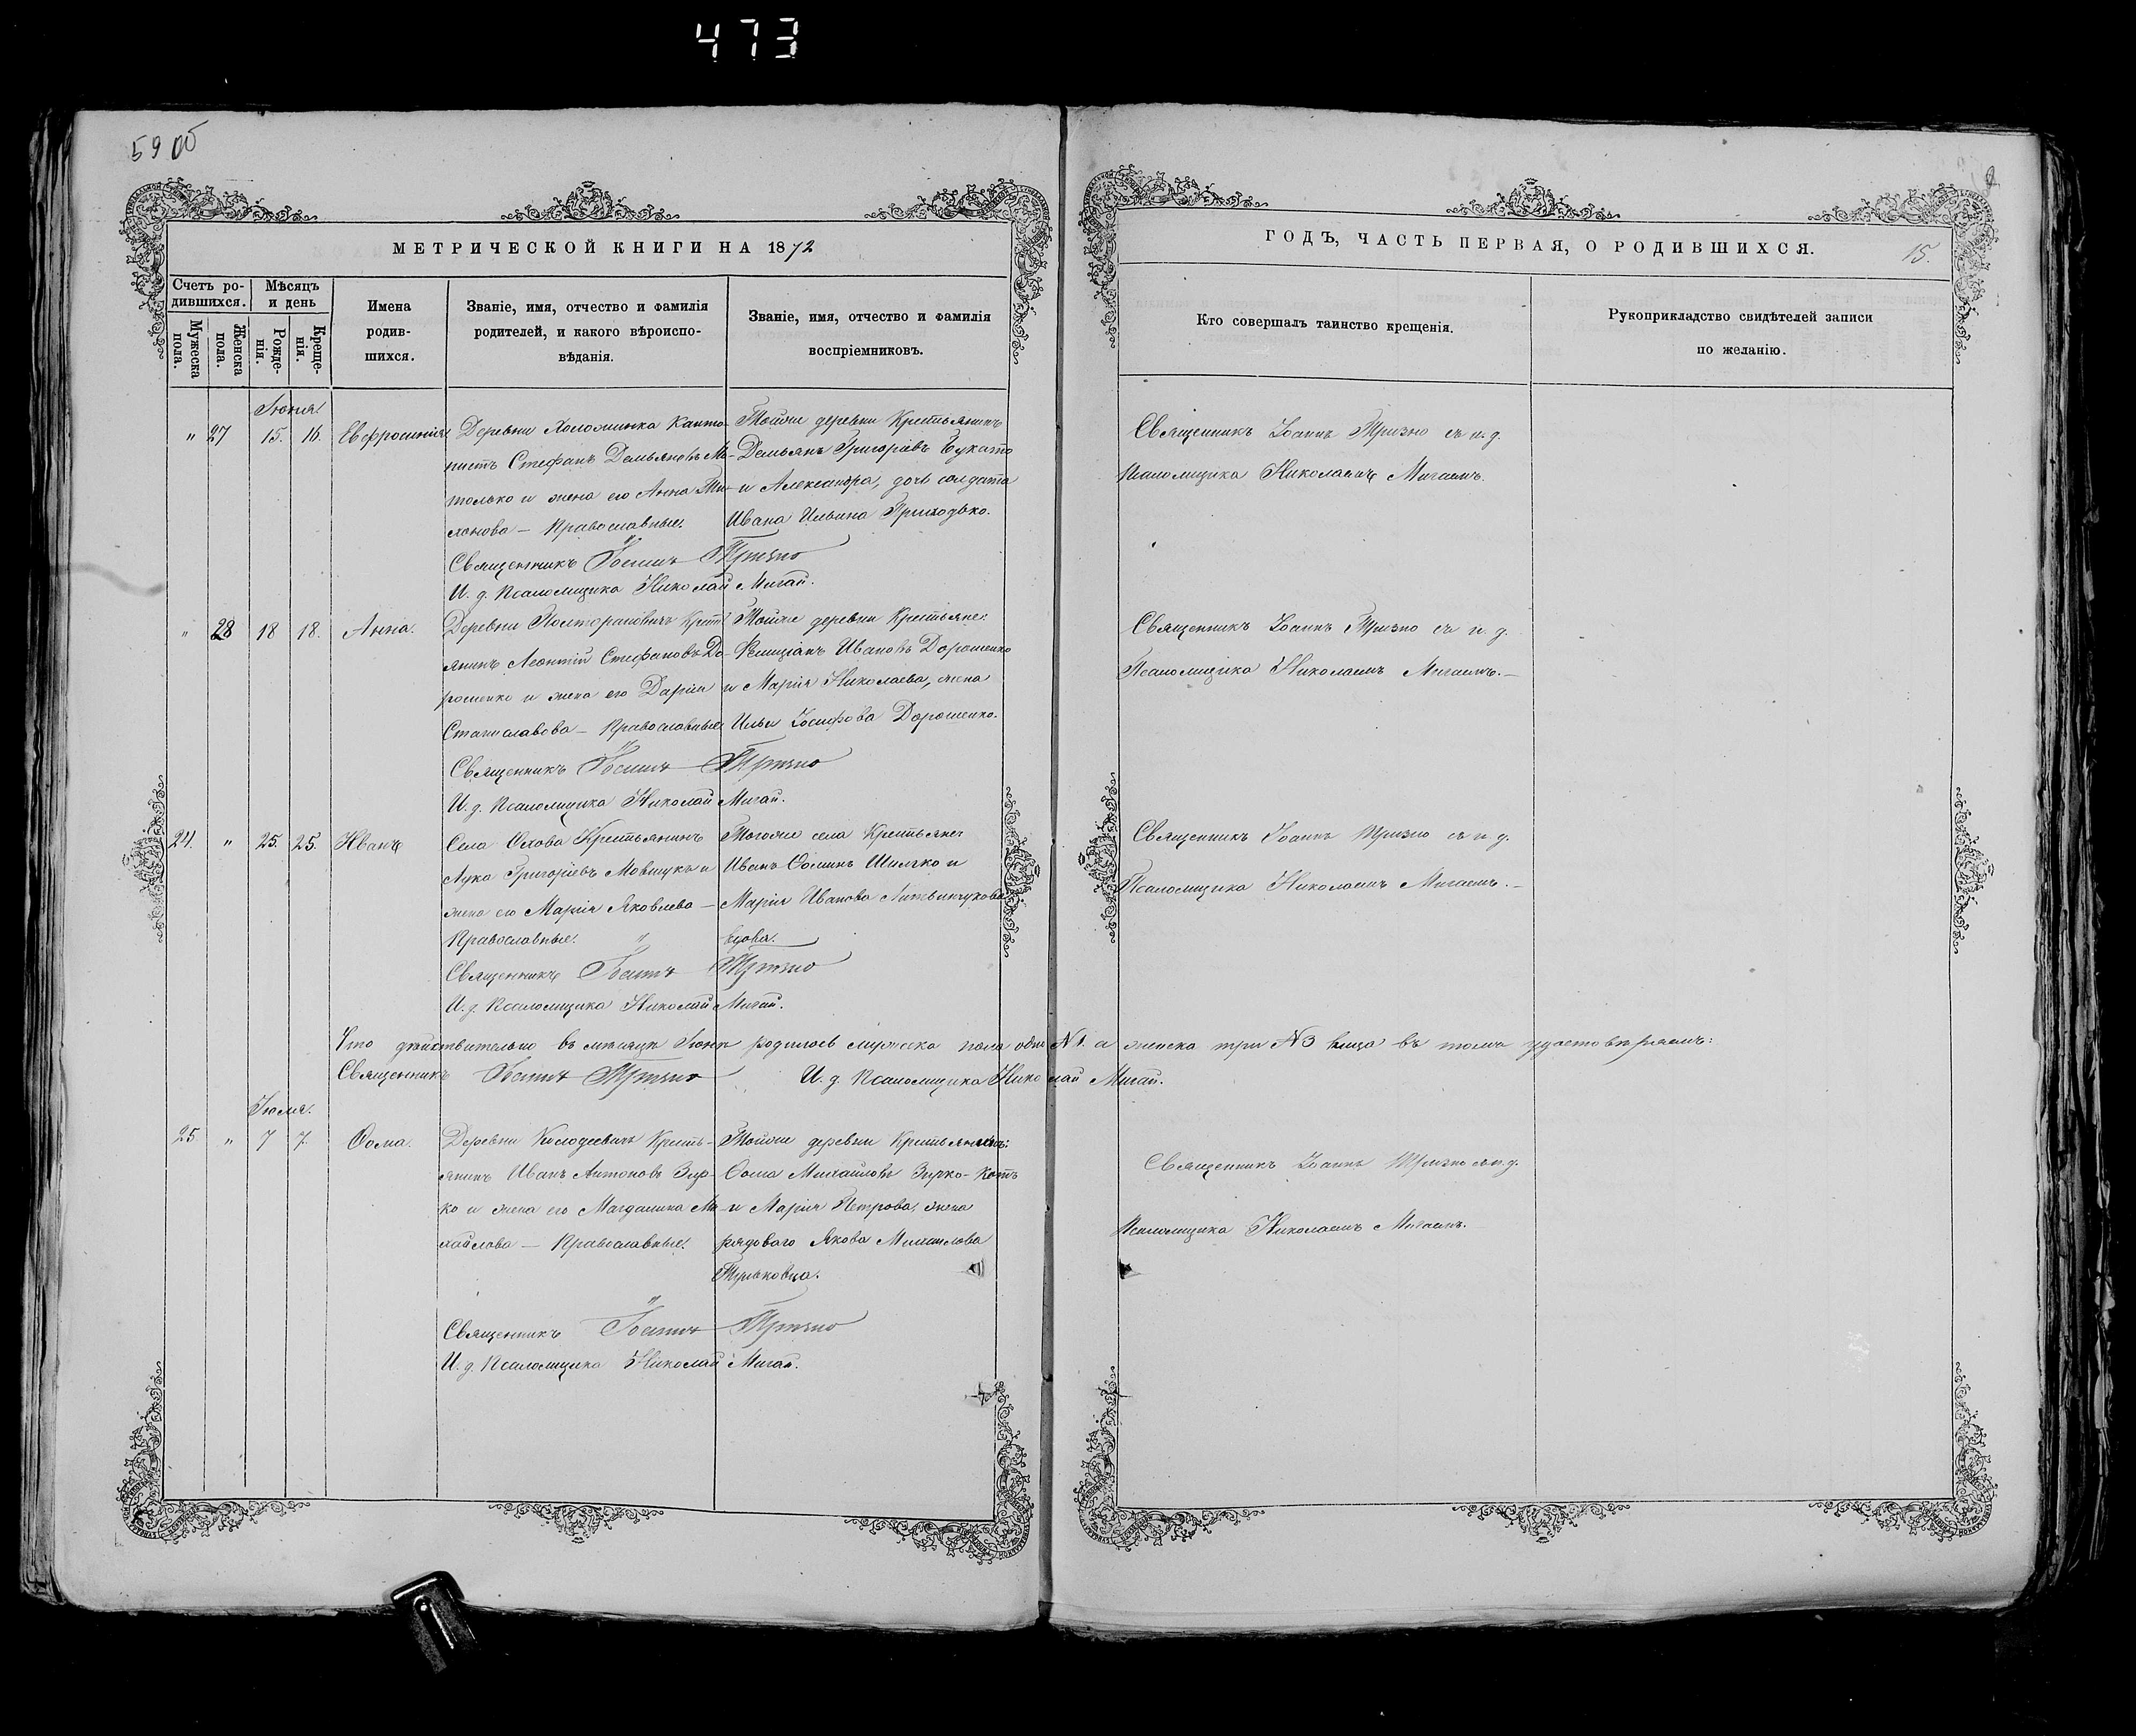 473
59 об
МЕТРИЧЕСКОЙ КНИГИ НА 1872
ГОДЪ, ЧАСТЬ ПЕРВАЯ, О РОДИВШИХСЯ.
15.
Счетъ ро-
дившихся.
Мѣсяцъ
и день
Мужеска
пола.
Женска
пола.
Рожде-
нія.
Креще-
нія.
Имена
родив-
шихся.
Званіе, имя, отчество и фамилія
родителей, и какого вѣроиспо-
вѣданія.
Званіе, имя, отчество и фамилія
воспріемниковъ.
Кто совершалъ таинство крещенія.
Рукоприкладство свидѣтелей записи
по желанію.
Іюня.
" 27 15. 16. Евфросинія
Деревни Канто-
нистъ Стефанъ Демьяновъ
только и жена его Анна Ти-
хонова — Православные.
Тойже деревни Крестьянинъ
Демьянъ Григорьевъ
и Александра, дочь солдата
Ивана Ильина Приходько.
Священникъ Іоаннъ Тризно
И. д. Псаломщика Николай Мигай.
Священникъ Іоаннъ Тризно съ и. д.
Псаломщика Николаемъ Мигаемъ.
" 28 18 18. Анна.
Деревни Крестъ-
янинъ Леонтій Стефановъ До-
рошенко и жена его Дарія
Станиславова — Православные
Тойже деревни Крестьяне:
Фелиціанъ Ивановъ Дорошенко
и Марія Николаева, жена
Ильи Іосифова Дорошенко.
Священникъ Іоаннъ Тризно
И. д. Псаломщика Николай Мигай.
Священникъ Іоаннъ Тризно съ и. д.
Псаломщика Николаемъ Мигаемъ. —
24. " 25. 25. Иванъ
Села Охова Крестьянинъ
Лука Григорьевъ Мовчукъ и
жена его Марія Яковлева —
Православные.
Тогоже села Крестьяне:
Иванъ Ѳоминъ и
Марія Иванова Литвинчукова
вдова.
Священникъ Іоаннъ Тризно
И. д. Псаломщика Николай Мигай.
Священникъ Іоаннъ Тризно съ и. д.
Псаломщика Николаемъ Мигаемъ. —
Что дѣйствительно въ мѣсяцѣ Іюнѣ родилось мужеска пола одно №1. а женска три №3 лица въ томъ удостовѣряемъ:
Священникъ Іоаннъ Тризно И. д. Псаломщика Николай Мигай.
Іюля.
25 " 7 7. Ѳома.
Деревни Колодеевичъ Кресть-
янинъ Иванъ Антоновъ Зир-
ко и жена его Магдалина Ми-
хайлова — Православные.
Тойже деревни Крестьянинъ:
Ѳома Михайловъ
и Марія Петрова, жена
рядоваго Якова
Священникъ Іоаннъ Тризно
И. д. Псаломщика Николай Мигай.
Священникъ Іоаннъ Тризно съ и. д.
Псаломщика Николаемъ Мигаемъ.